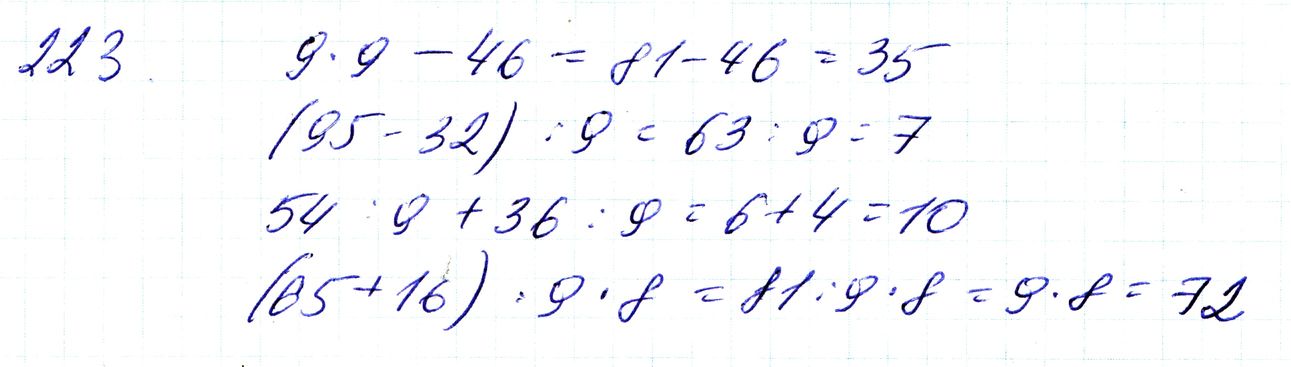 223. 9·9 - 46 = 81 - 46 = 35
(95 - 32) : 9 = 63 : 9 = 7
54 : 9 + 36 : 9 = 6 + 4 = 10
(65 + 16) : 9 · 8 = 81 : 9 · 8 = 9 · 8 = 72